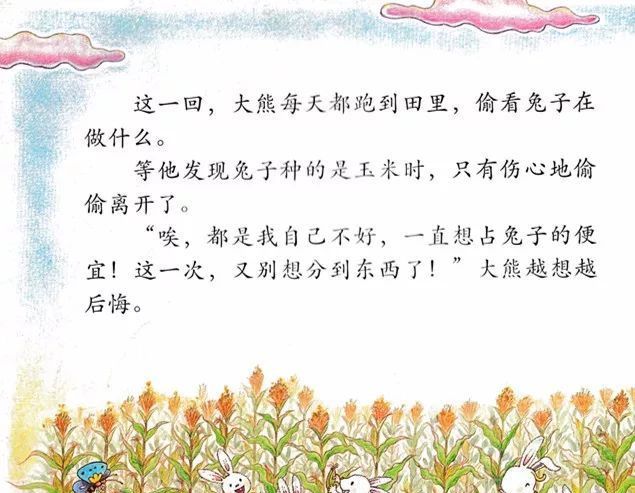 这一回，大熊每天都跑到田里，偷看兔子在
做什么。
等他发现兔子种的是玉米时，只有伤心地偷
偷离开了。
“唉，都是我自己不好，一直想占兔子的便
宜！这一次，又别想分到东西了！”大熊越想越
后悔。